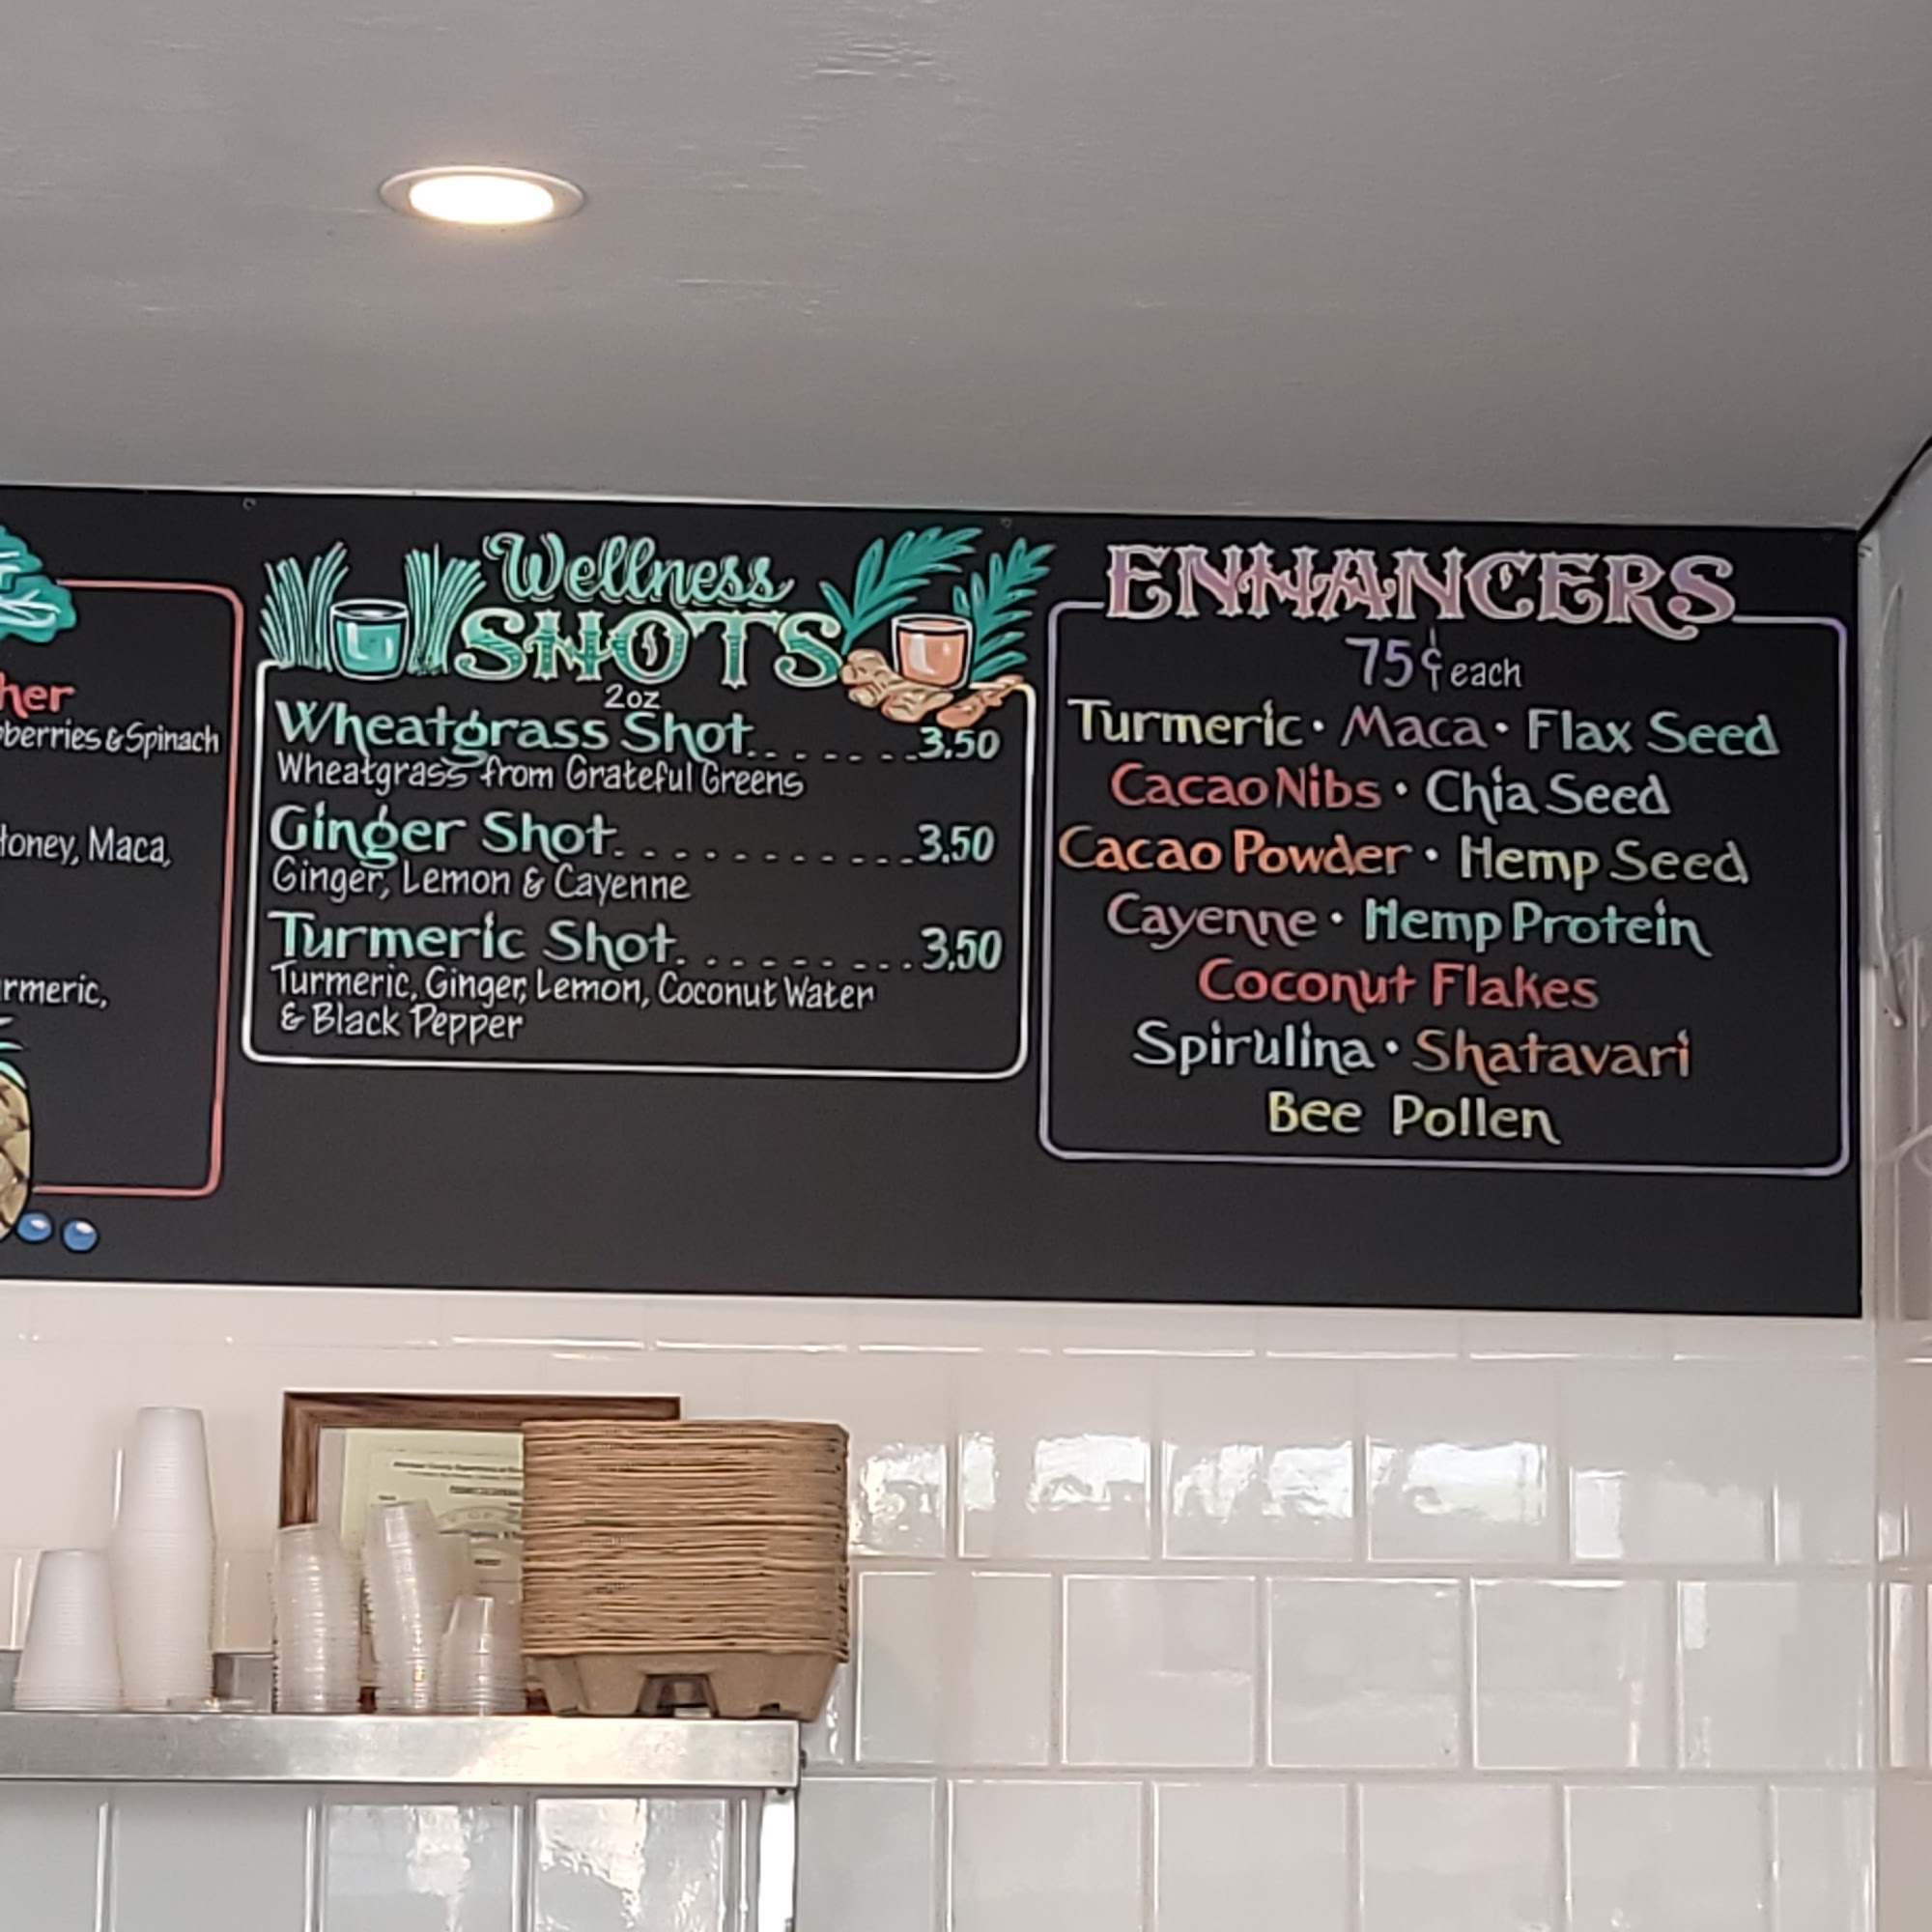 her
berries & Spinach
Honey, Maca,
Wellness
SHOTS
2oz
Wheatgrass Shot........3.50
Wheatgrass from Grateful Greens
Ginger Shot............3.50
Ginger, Lemon & Cayenne
Turmeric Shot.........3.50
Turmeric, Ginger, Lemon, Coconut Water
& Black Pepper
ENHANCERS
75¢ each
Turmeric • Maca • Flax Seed
Cacao Nibs • Chia Seed
Cacao Powder • Hemp Seed
Cayenne • Hemp Protein
Coconut Flakes
Spirulina • Shatavari
Bee Pollen